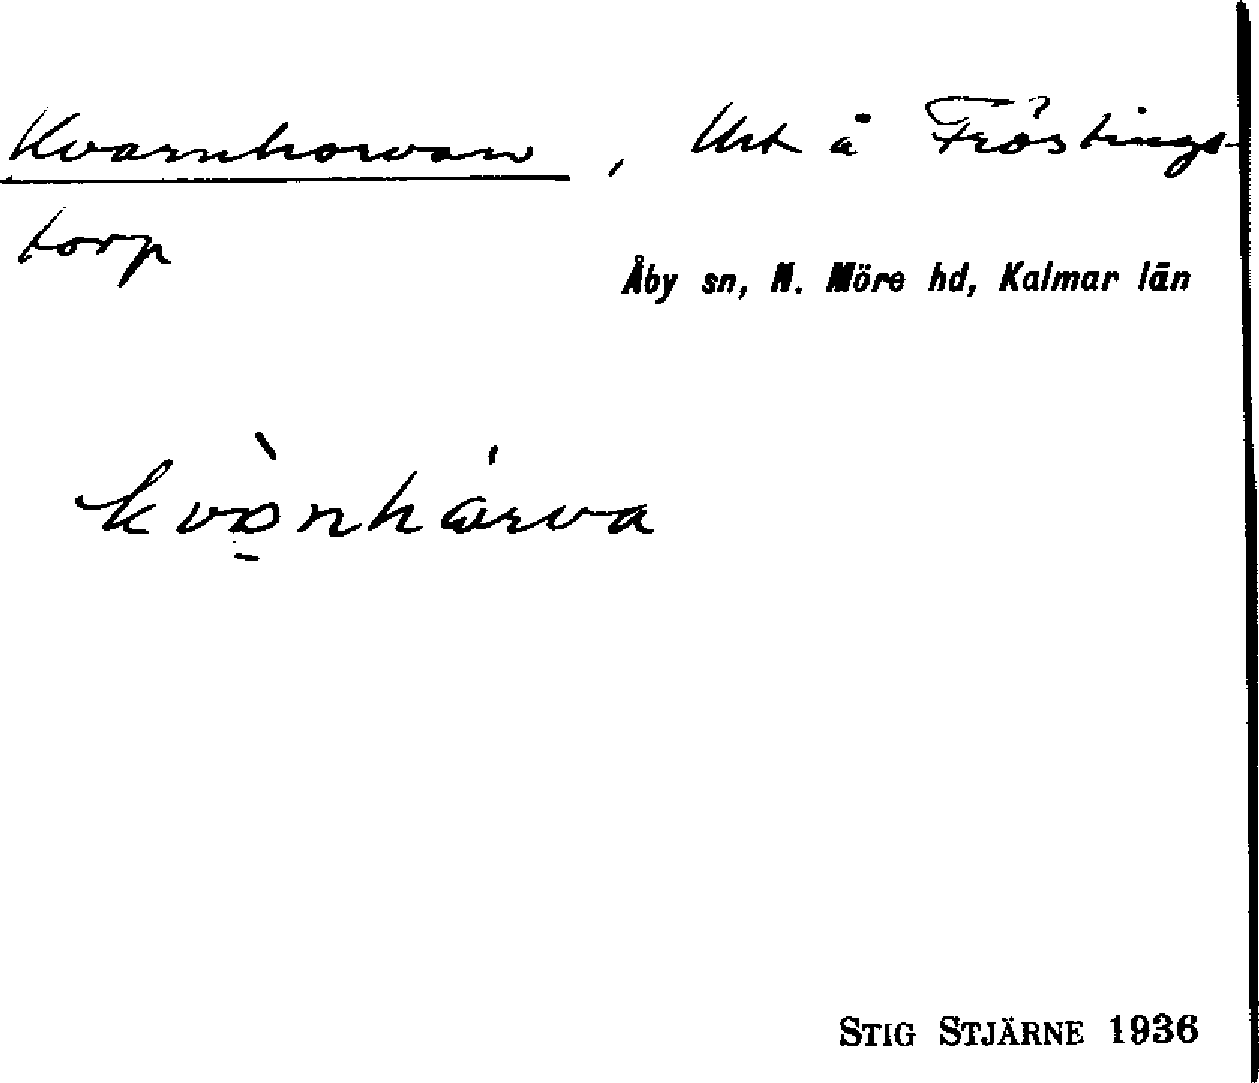 Kvarnhorvan, Urt å Fröstings-
torp
Åby sn, N. Möre hd, Kalmar län
kvὰnhårva
STIG STJÄRNE 1936